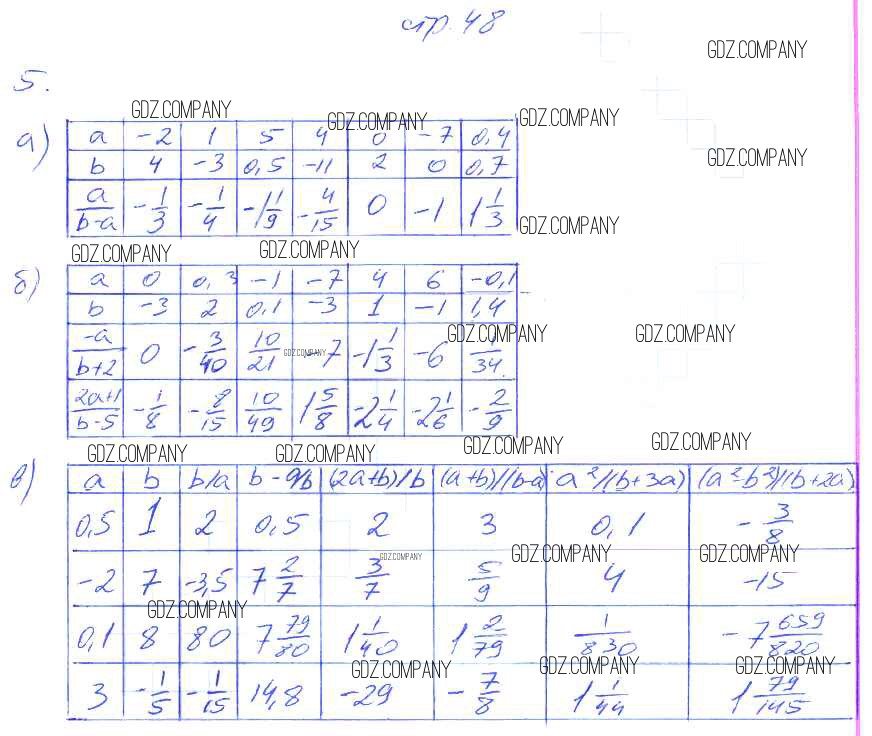 стр. 48
GDZ.COMPANY
5.
GDZ.COMPANY GDZ.COMPANY GDZ.COMPANY
а) a -2 1 5 4 0 -7 0,4
b 4 -3 0,5 -11 2 0 0,7
GDZ.COMPANY
a/(b-a) -1/3 -1/4 -1 1/9 -4/15 0 -1 1 1/3
GDZ.COMPANY
GDZ.COMPANY GDZ.COMPANY
б) a 0 0,3 -1 -7 4 6 -0,1
b -3 2 0,1 -3 1 -1 1,4
GDZ.COMPANY GDZ.COMPANY
-a/(b+2) 0 -3/40 10/21 GDZ.COMPANY -7 -1 1/3 -6 1/34
2a+1/(b-5) -1/8 -8/15 10/49 1 5/8 -2 1/4 -2 1/6 -2/9
GDZ.COMPANY GDZ.COMPANY GDZ.COMPANY GDZ.COMPANY
в) a b b/a b-a/b (2a+b)/b (a+b)/(b-a) a²/(b+3a) (a²-b²)/(b+2a)
0,5 1 2 0,5 2 3 0,1 -3/8
GDZ.COMPANY GDZ.COMPANY GDZ.COMPANY
-2 7 -3,5 7 2/7 3/7 5/9 4 -15
GDZ.COMPANY
0,1 8 80 7 79/80 1 1/40 1 2/79 1/830 -7 659/820
GDZ.COMPANY GDZ.COMPANY GDZ.COMPANY
3 -1/5 -1/15 14,8 -29 -7/8 1 1/44 1 79/145